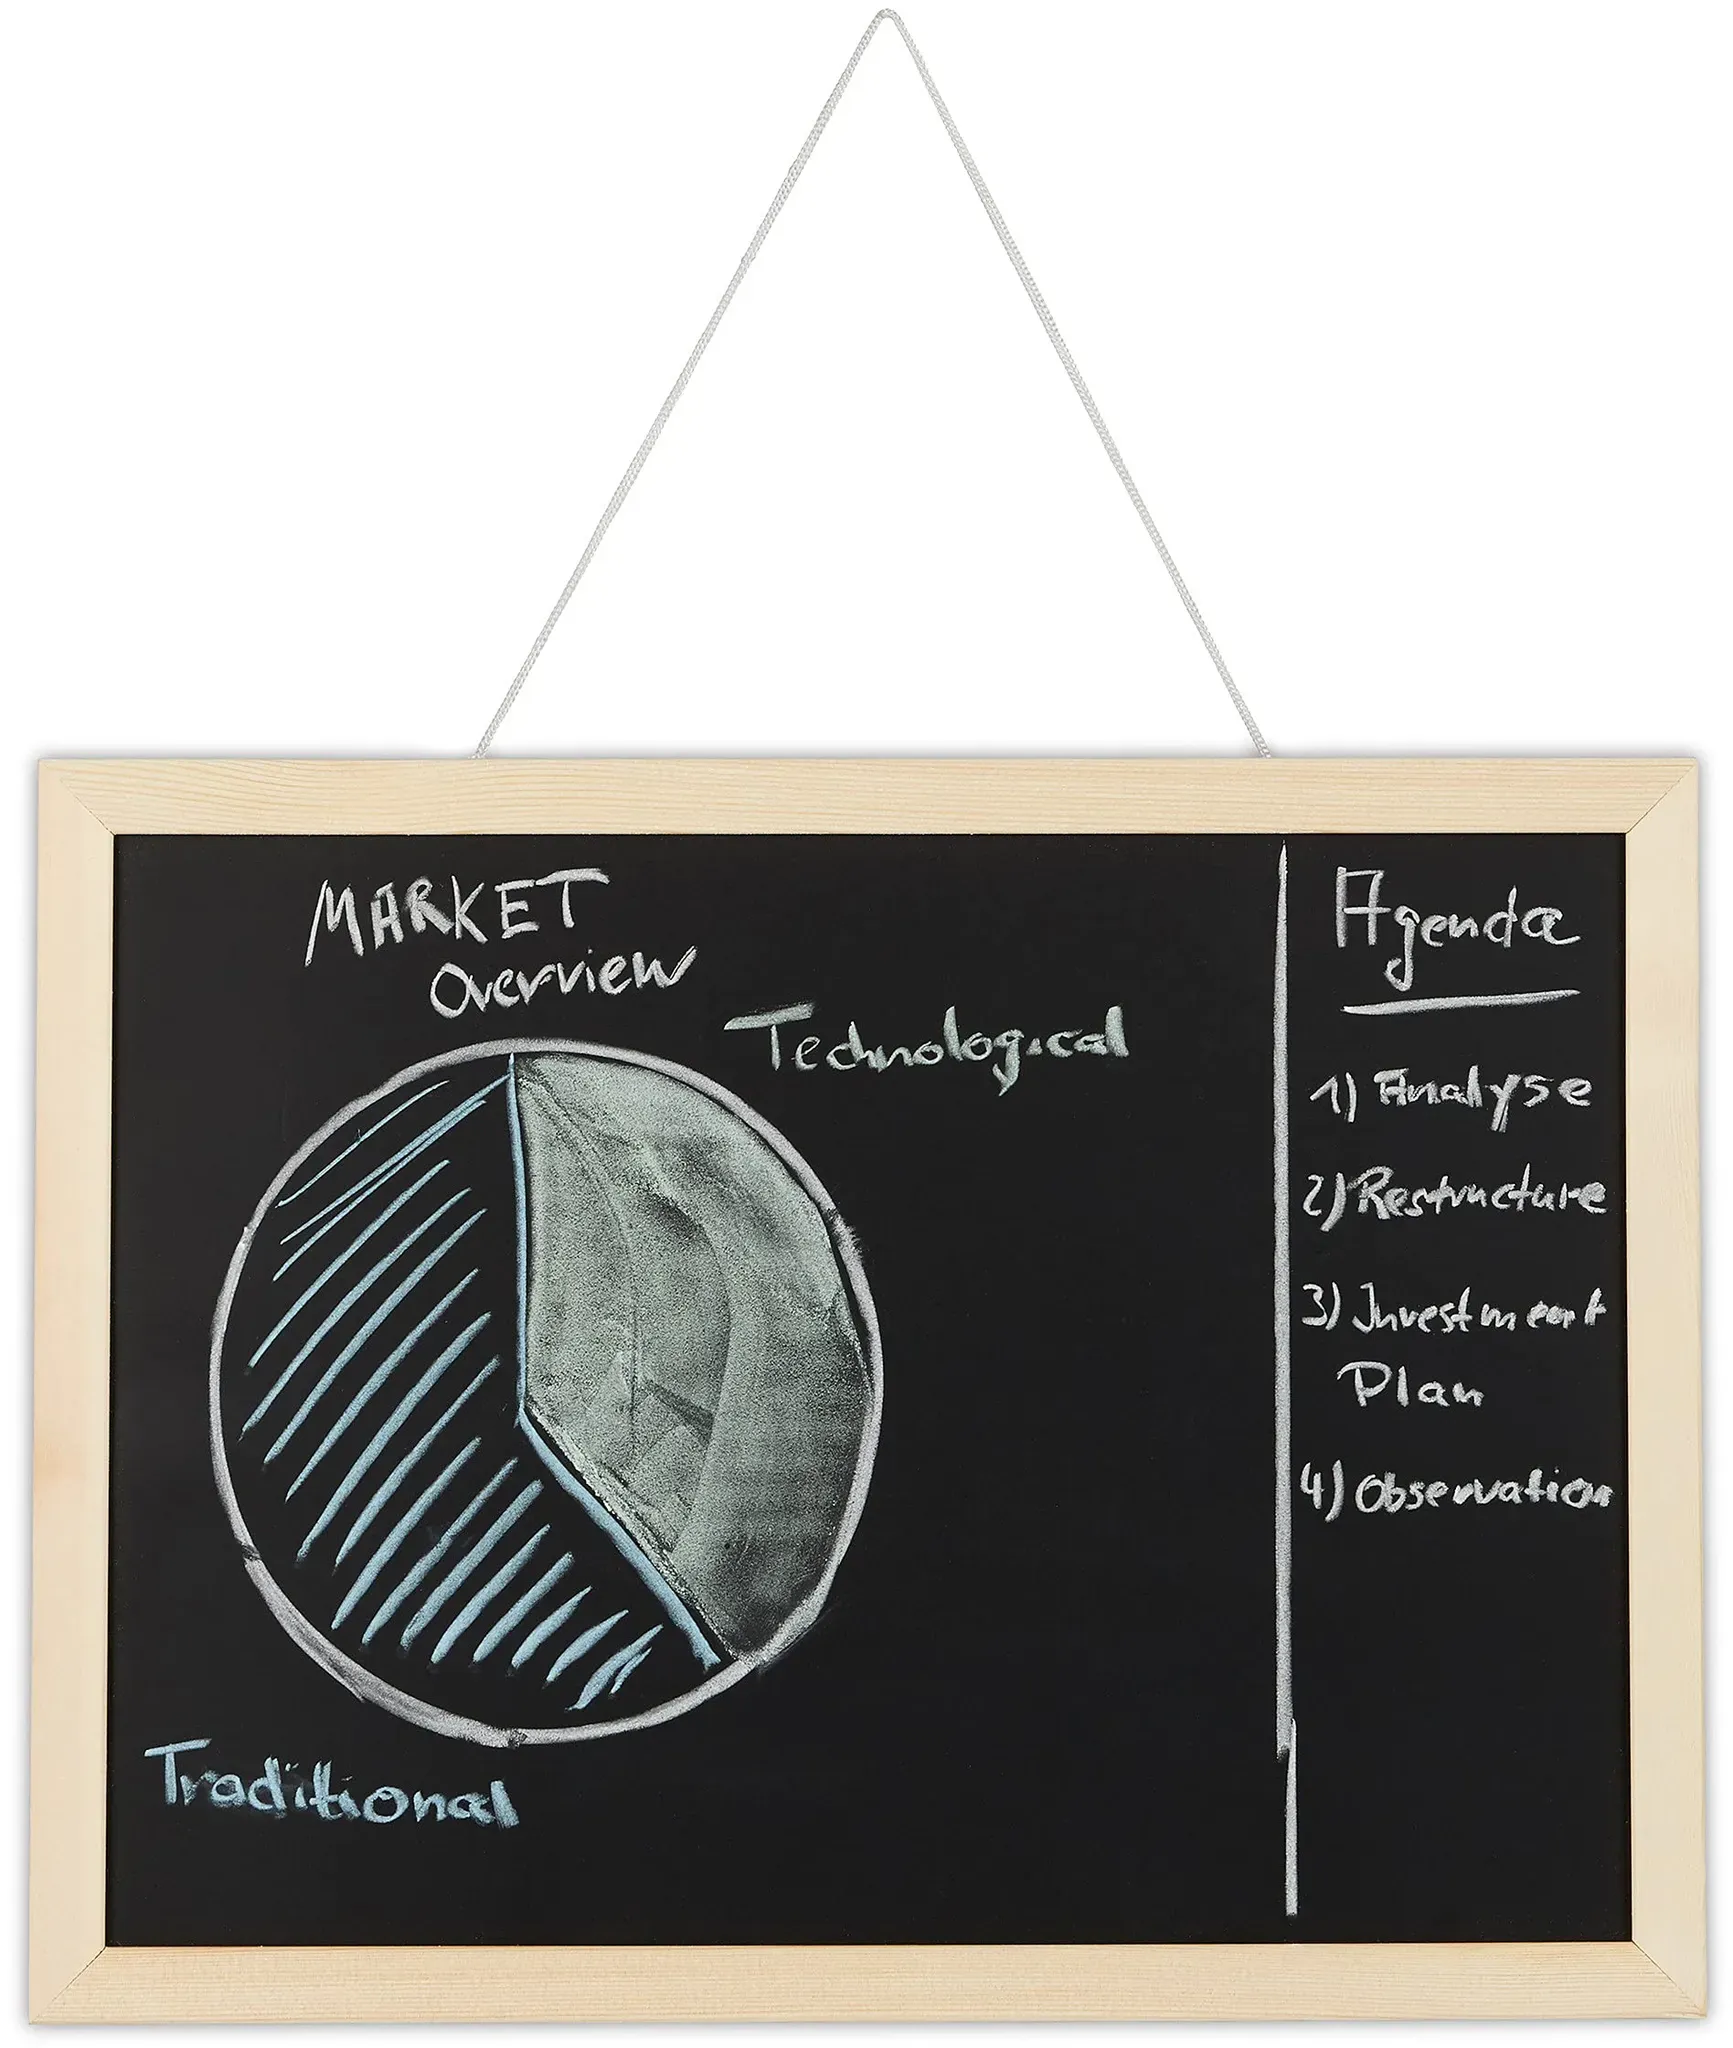 MARKET
Overview
Technological
Traditional
Agenda
1) Analyse
2) Restructure
3) Investment
Plan
4) Observation